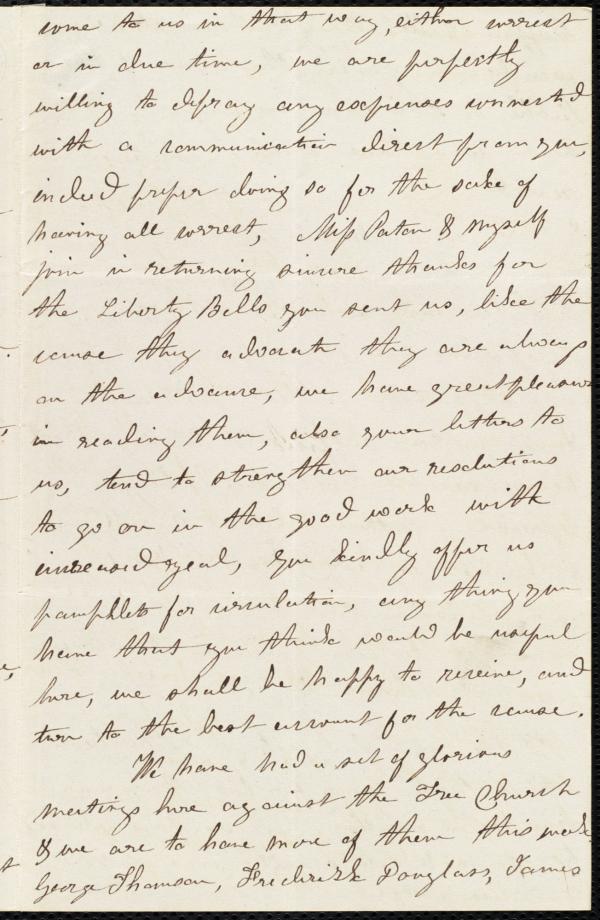 come to us in that way, either correct
or in due time, we are perfectly
willing to defray any expenses connected
with a communication direct from you,
indeed prefer doing so for the sake of
having all correct, Miss Paton & myself
join in returning sincere thanks for
the Liberty Bells you sent us, like the
cause they advocate they are always
on the advance, we have great pleasure
in reading them, also your letters to
us, tend to strengthen our resolutions
to go on in the good work with
increased zeal, you kindly offer us
pamphlets for circulation, any thing you
have that you think would be useful
here, we shall be happy to receive, and
turn to the best account for the cause.
We have had a set of glorious
meetings here against the Free Church
& we are to have more of them this week
George Thomson, Frederick Douglass, James